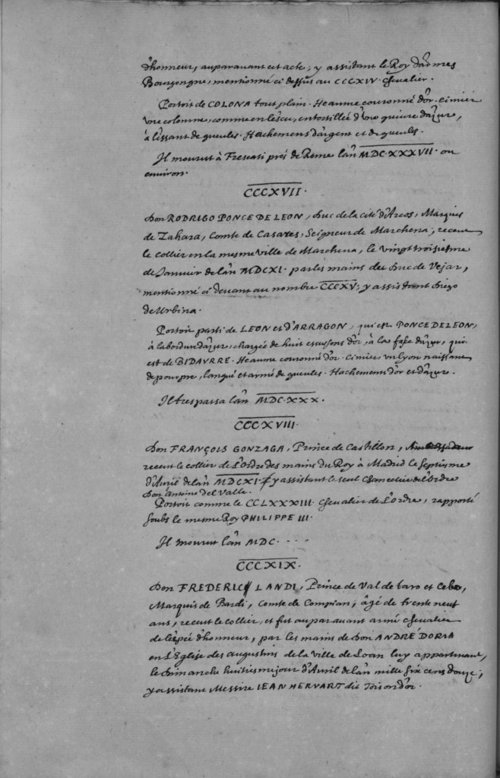 d'honneur, auparauant cet acte; y assistant le Roy d'armes
Bourgongne, mentionné ci dessus au CCCXIV Cheualier.
Portoit de COLONA tout plain. Heaume couronné d'or. Cimier
vne colomne, comme en l'escu, entortillée d'vne guiure d'azur,
à l'issant de gueules. Hachemens d'argent et de gueules.
Il mourut à Frescati prés de Rome l'an MDCXXXVII. ou
enuiron.
CCCXVII.
Don RODRIGO PONCE DE LEON, Duc de la cité d'Arcos, Marquis
de Zahara, Comte de Casares, Seigneur de Marchena, receut
le collier en la mesme ville de Marchena, le vingt troisiesme
de Januier de l'an MDCXI. par les mains du Duc de Vejar,
mentionné ci deuant au nombre CCCXV; y assistant Diego
de Urbina.
Portoit parti de LEON et d'ARRAGON, qui est PONCE DE LEON,
à la bordure d'azur, chargée de huit escussons d'or, à la fasce d'azur, qui
est de BIDAVRRE. Heaume couronné d'or. Cimier, vn lyon naissant
de pourpre, langué et armé de gueules. Hachemens d'or et d'azur.
Il trespassa l'an MDCXXX.
CCCXVIII.
Don FRANÇOIS GONZAGA, Prince de Castillon,
receut le collier de l'Ordre des mains du Roy à Madrid le septiesme
d'Auril de l'an MDCXI. y assistant le seul Chancelier de l'Ordre
Don Antoine del Valle.
Portoit comme le CCLXXXIII Cheualier de l'Ordre, rapporté
soubs le mesme Roy PHILIPPE III.
Il mourut l'an MDC . . . .
CCCXIX.
Don FREDERIC LANDI, Prince de Val de Taro et Ceba,
Marquis de Bardi, Comte de Compian, âgé de trente neuf
ans, receut le collier, et fut auparauant armé cheualier
de l'espée d'honneur, par les mains de Don ANDRÉ DORIA
en l'Eglise des augustins de la ville de Loan luy appartenant,
le dimanche huitiesme jour d'Auril de l'an mille six cens douze,
y assistant Messire JEAN HERVART dit Toison d'or.